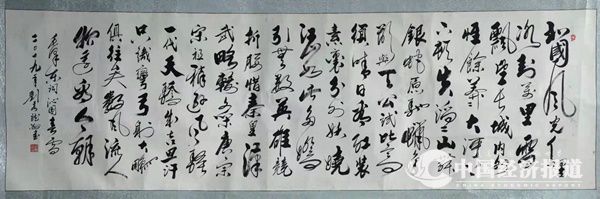 北国风光千里
冰封万里雪
飘望长城内外
惟余莽莽大河
上下顿失滔滔山舞
银蛇原驰蜡象
欲与天公试比高
须晴日看红装
素裹分外妖娆
江山如此多娇
引无数英雄竞
折腰惜秦皇汉
武略输文采唐宗
宋祖稍逊风骚
一代天骄成吉思汗
只识弯弓射大雕
俱往矣数风流人
物还看今朝
毛泽东词沁园春雪
二〇一九年
中国经济报道
CHINA ECONOMIC REPORT